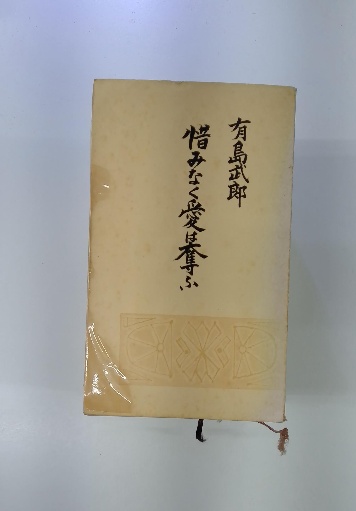 有島武郎
惜みなく愛は奪ふ